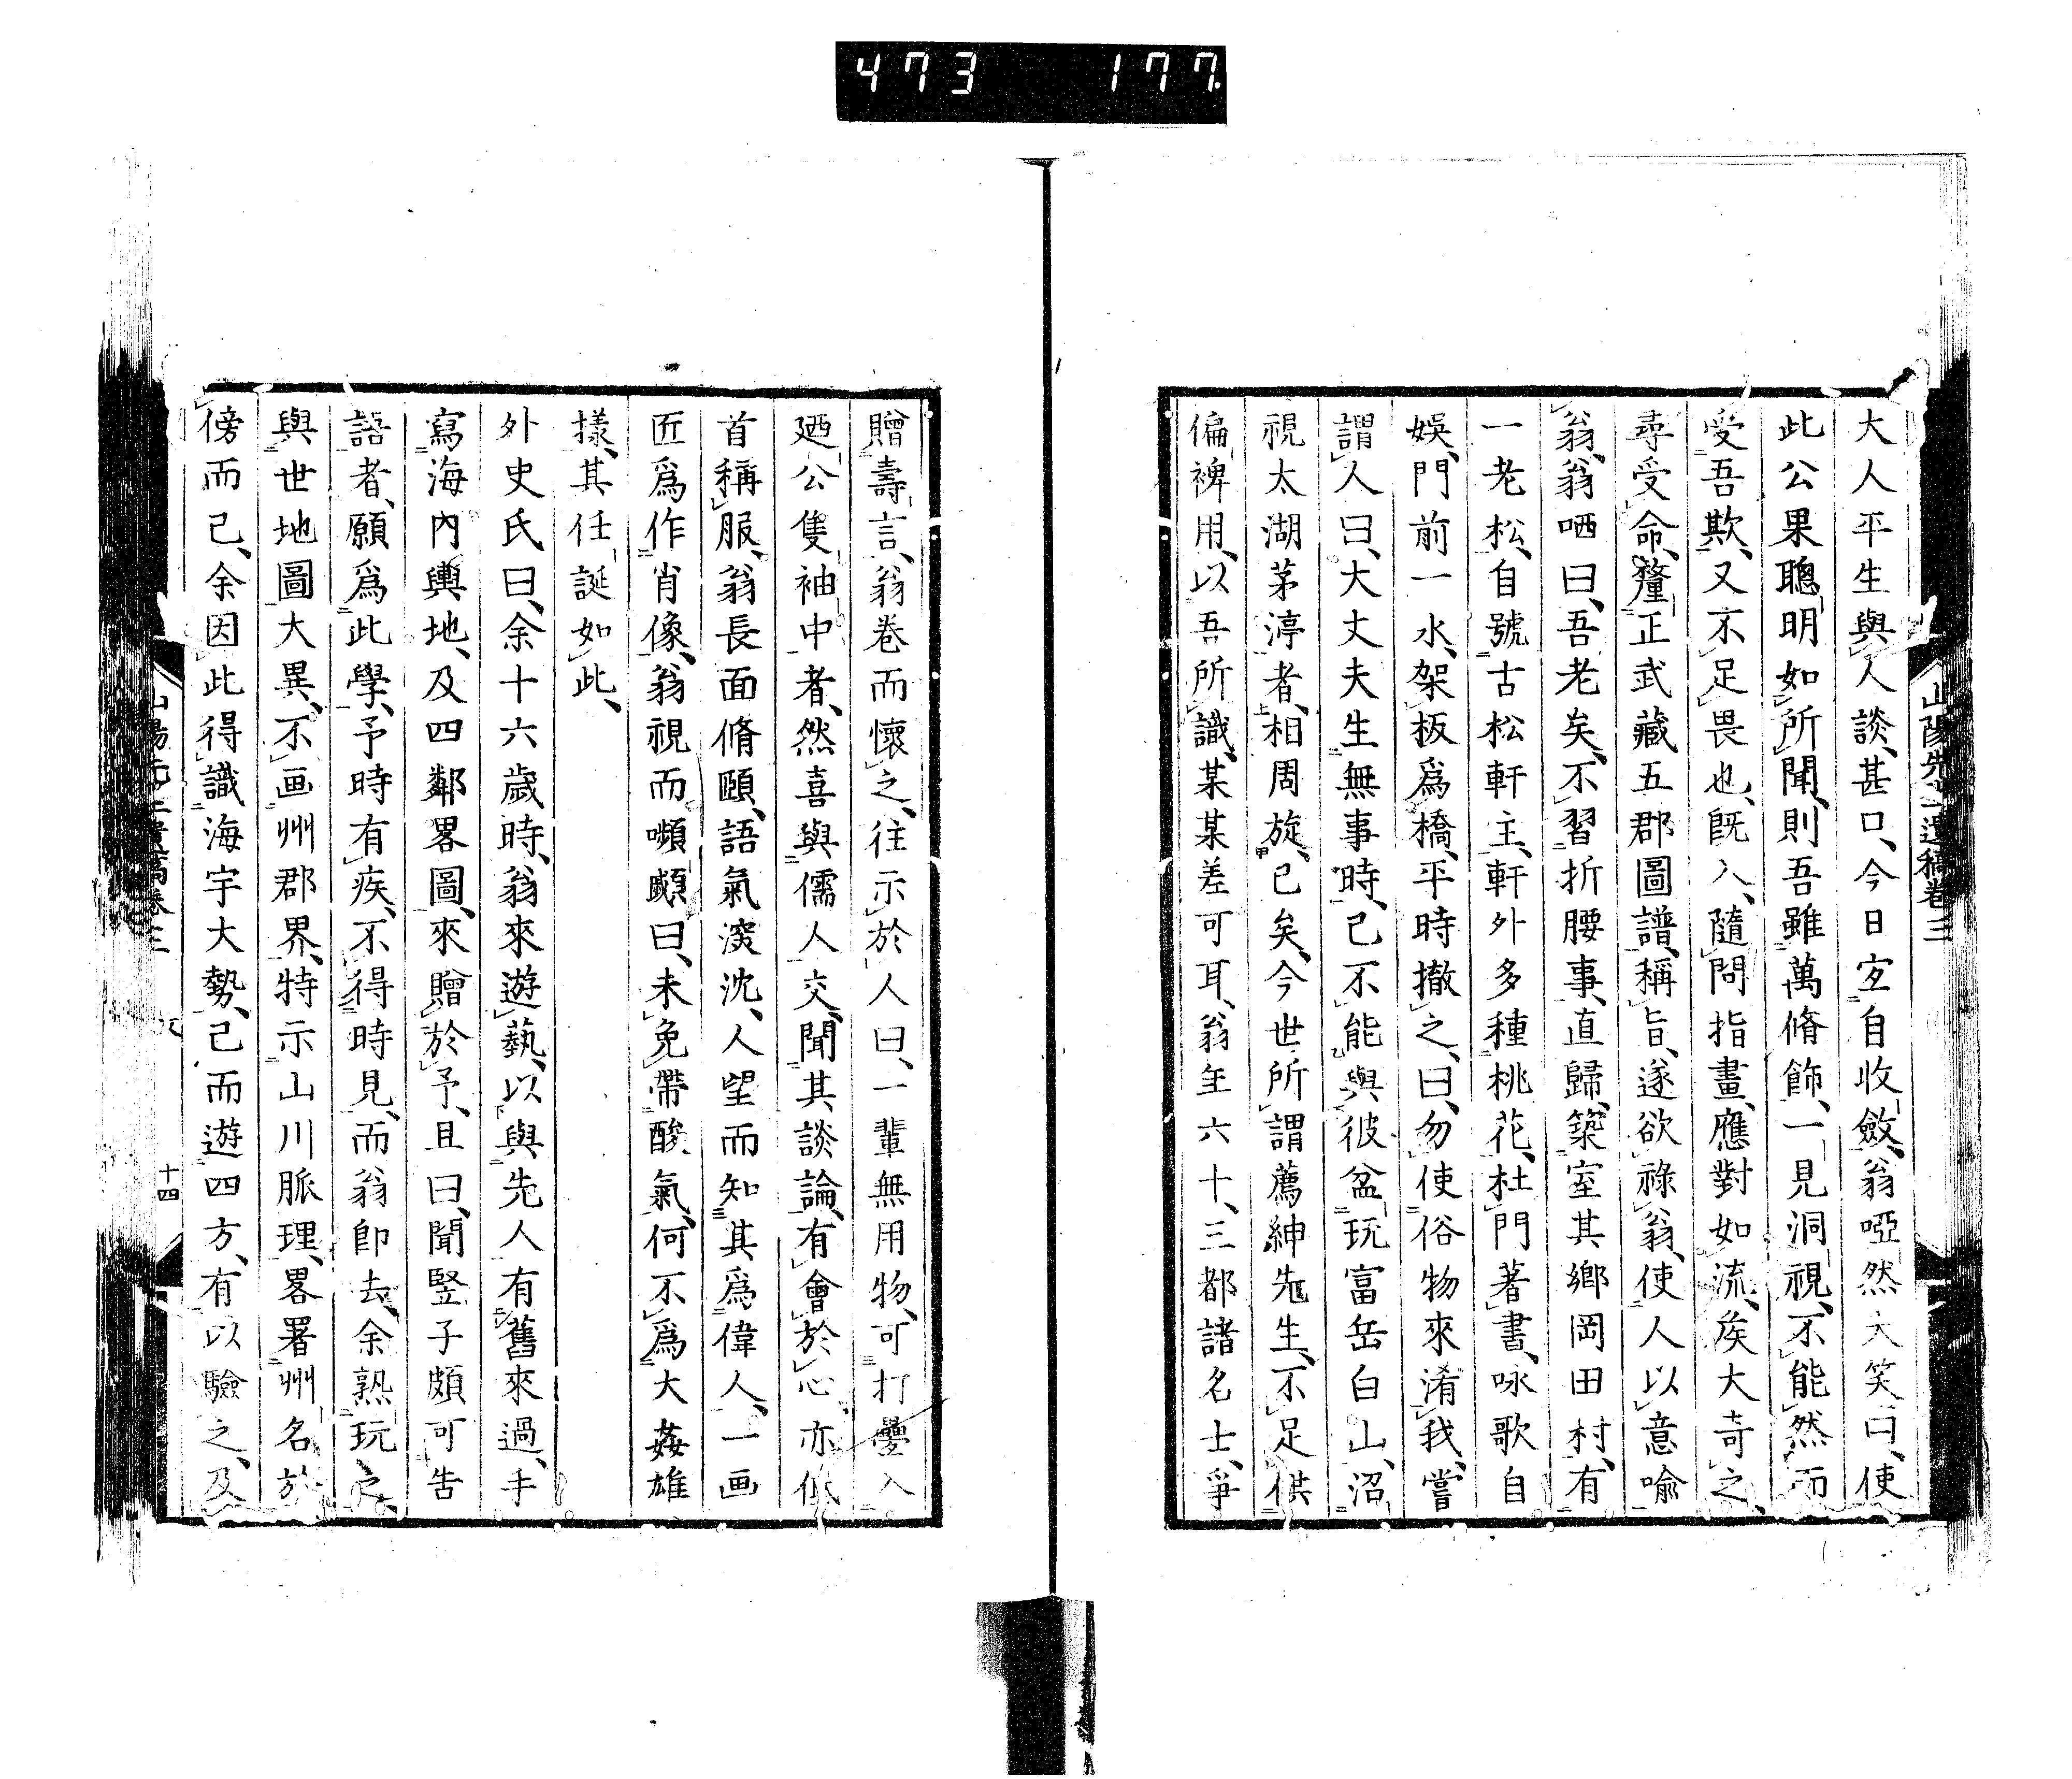 473 177
山陽先生遺稿卷三
大人平生與人談、甚口、今日宜自收斂、翁啞然大笑曰、使
此公果聰明如所聞、則吾雖萬脩飾、一見洞視、不能然而
受吾欺、又不足畏也、既入、隨問指畫、應對如流、矦大奇之、
尋受命、釐正武藏五郡圖譜、稱旨、遂欲祿翁、使人以意喩
翁、翁哂曰、吾老矣、不習折腰事、直歸、築室其鄉岡田村、有
一老松、自號古松軒主、軒外多種桃花、杜門著書、咏歌自
娛、門前一水、架板爲橋、平時撤之、曰、勿使俗物來淆我、嘗
謂人曰、大丈夫生無事時、已不能與彼盆玩富岳白山、沼
視太湖茅渟者、相周旋、已矣、今世所謂薦紳先生、不足供
偏裨用、以吾所識、某某差可耳、翁年六十、三都諸名士、爭
贈壽言、翁卷而懷之、往示於人曰、一輩無用物、可打疊入
廼公隻袖中者、然喜與儒人交、聞其談論、有會於心、亦低
首稱服、翁長面脩頤、語氣深沈、人望而知其爲偉人、一画
匠爲作肖像、翁視而嚬顣曰、未免帶酸氣、何不爲大姦雄
樣、其任誕如此、
外史氏曰、余十六歲時、翁來遊藝、以與先人有舊來過、手
寫海內輿地、及四鄰畧圖、來贈於予、且曰、聞豎子頗可告
語者、願爲此學、予時有疾、不得時見、而翁卽去、余熟玩之、
與世地圖大異、不画州郡界、特示山川脈理、畧署州名於
傍而已、余因此得識海宇大勢、已而遊四方、有以驗之、及
山陽先生遺稿卷三
十四